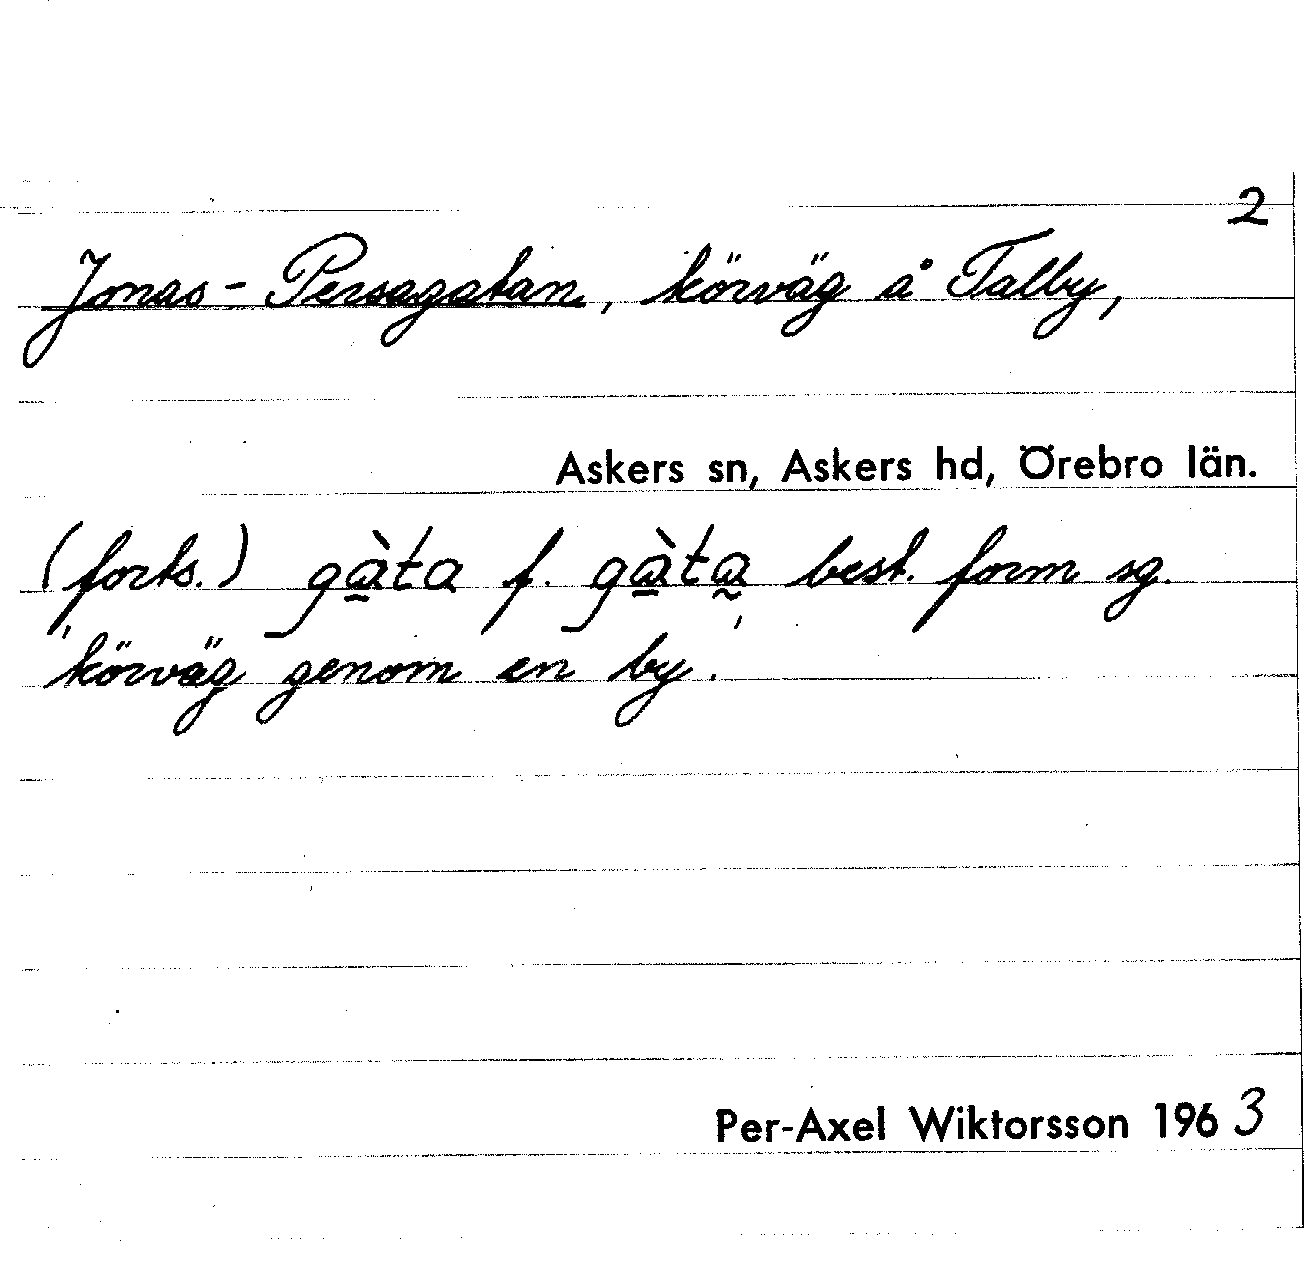 2
Jonas-Persagatan, körväg å Talby,
Askers sn, Askers hd, Örebro län.
(forts.) gå̠̀ta f. gà̠ta̰ best. form sg.
'körväg genom en by.'
Per-Axel Wiktorsson 1963